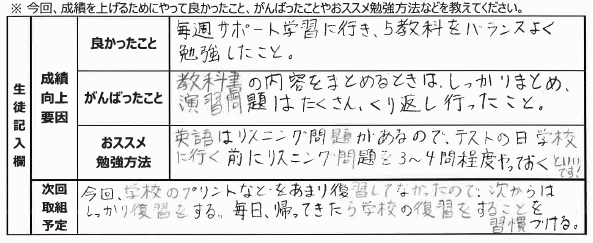 ※ 今回、成績を上げるためにやって良かったこと、がんばったことやおススメ勉強方法などを教えてください。
生徒記入欄
成績向上要因
良かったこと
毎週サポート学習に行き、5教科をバランスよく
勉強したこと。
がんばったこと
教科書の内容をまとめるときは、しっかりまとめ、
演習問題はたくさん、くり返し行ったこと。
おススメ
勉強方法
英語はリスニング問題があるので、テストの日学校
に行く前にリスニング問題を3〜4問程度やっておくといい
です!
次回
取組
予定
今回、学校のプリントなどをあまり復習してなかったので、次からは
しっかり復習をする。毎日、帰ってきたら学校の復習をすることを
習慣づける。